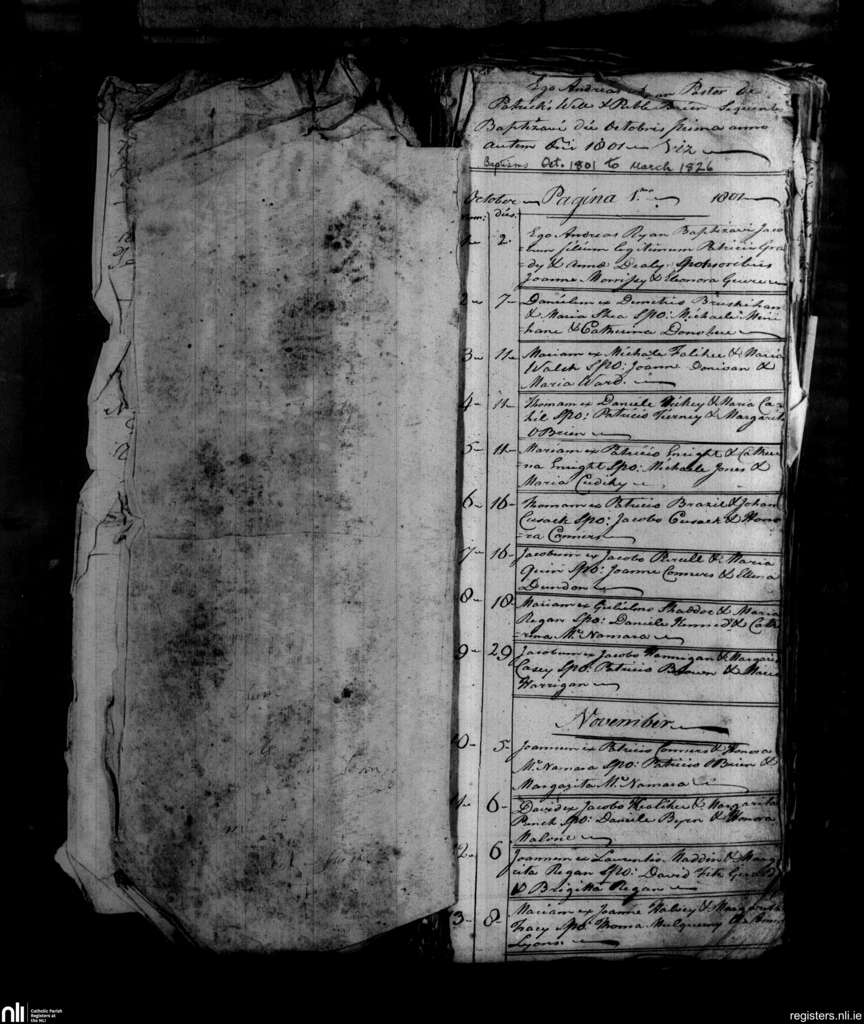 Ego Andreas Ryan Pastor de
Patrick's Well & Pable Brien sequentes
Baptizavi die Octobris prima anno
autem Dni 1801 Viz
Baptisms Oct. 1801 to March 1826
October Pagina 1ma 1801
num: dies
1 2 Ego Andreas Ryan Baptizavi Jaco
bum filium legitimum Patricii Gra
dy & Annæ Dealy Sponsoribus
Joanne Morrissey & Eleonora
2 7 Danielem ex Demetrio
& Maria Shea Spo: Michaele Mee
hane & Catherina Donohue
3 11 Mariam ex Michaele & Maria
Walsh Spo: Joanne Donivan &
Maria Ward.
4 11 Thomam ex Daniele Hickey & Maria Ca
hil Spo: Patricio Tierney & Margarita
O Brien
5 11 Mariam ex Patricio Enright & Catheri
na Enright Spo: Michaele Jones &
Maria Cudihy
6 16 Thomam ex Patricio Brazil & Johan
Cusack Spo: Jacobo Cusack & Hono
ra Conners
7 16 Jacobum ex Jacobo Purcell & Maria
Quin Spo: Joanne Conners & Ellena
Dundon
8 18 Mariam ex Gulielmo & Maria
Regan Spo: Daniele & Cath
erina McNamara
9 29 Jacobum ex Jacobo Hannigan & Margarita
Casey Spo: Patricio & Maria
Harrigan
November
10 5 Joannem ex Patricio Conners & Honora
McNamara Spo: Patricio O Brien &
Margarita McNamara
11 6 Davidem ex Jacobo & Margarita
Punch Spo: Daniele Byrn & Honora
Malone
12 6 Joannem ex Laurentio Madden & Marga
rita Regan Spo: David Fitz Gerald
& Brigitta Regan
13 8 Mariam ex Joanne & Margarita
Tracy Spo: Thoma Mulqueeny & Anna
Lyons
nli Catholic Parish
Registers at
the NLI
registers.nli.ie